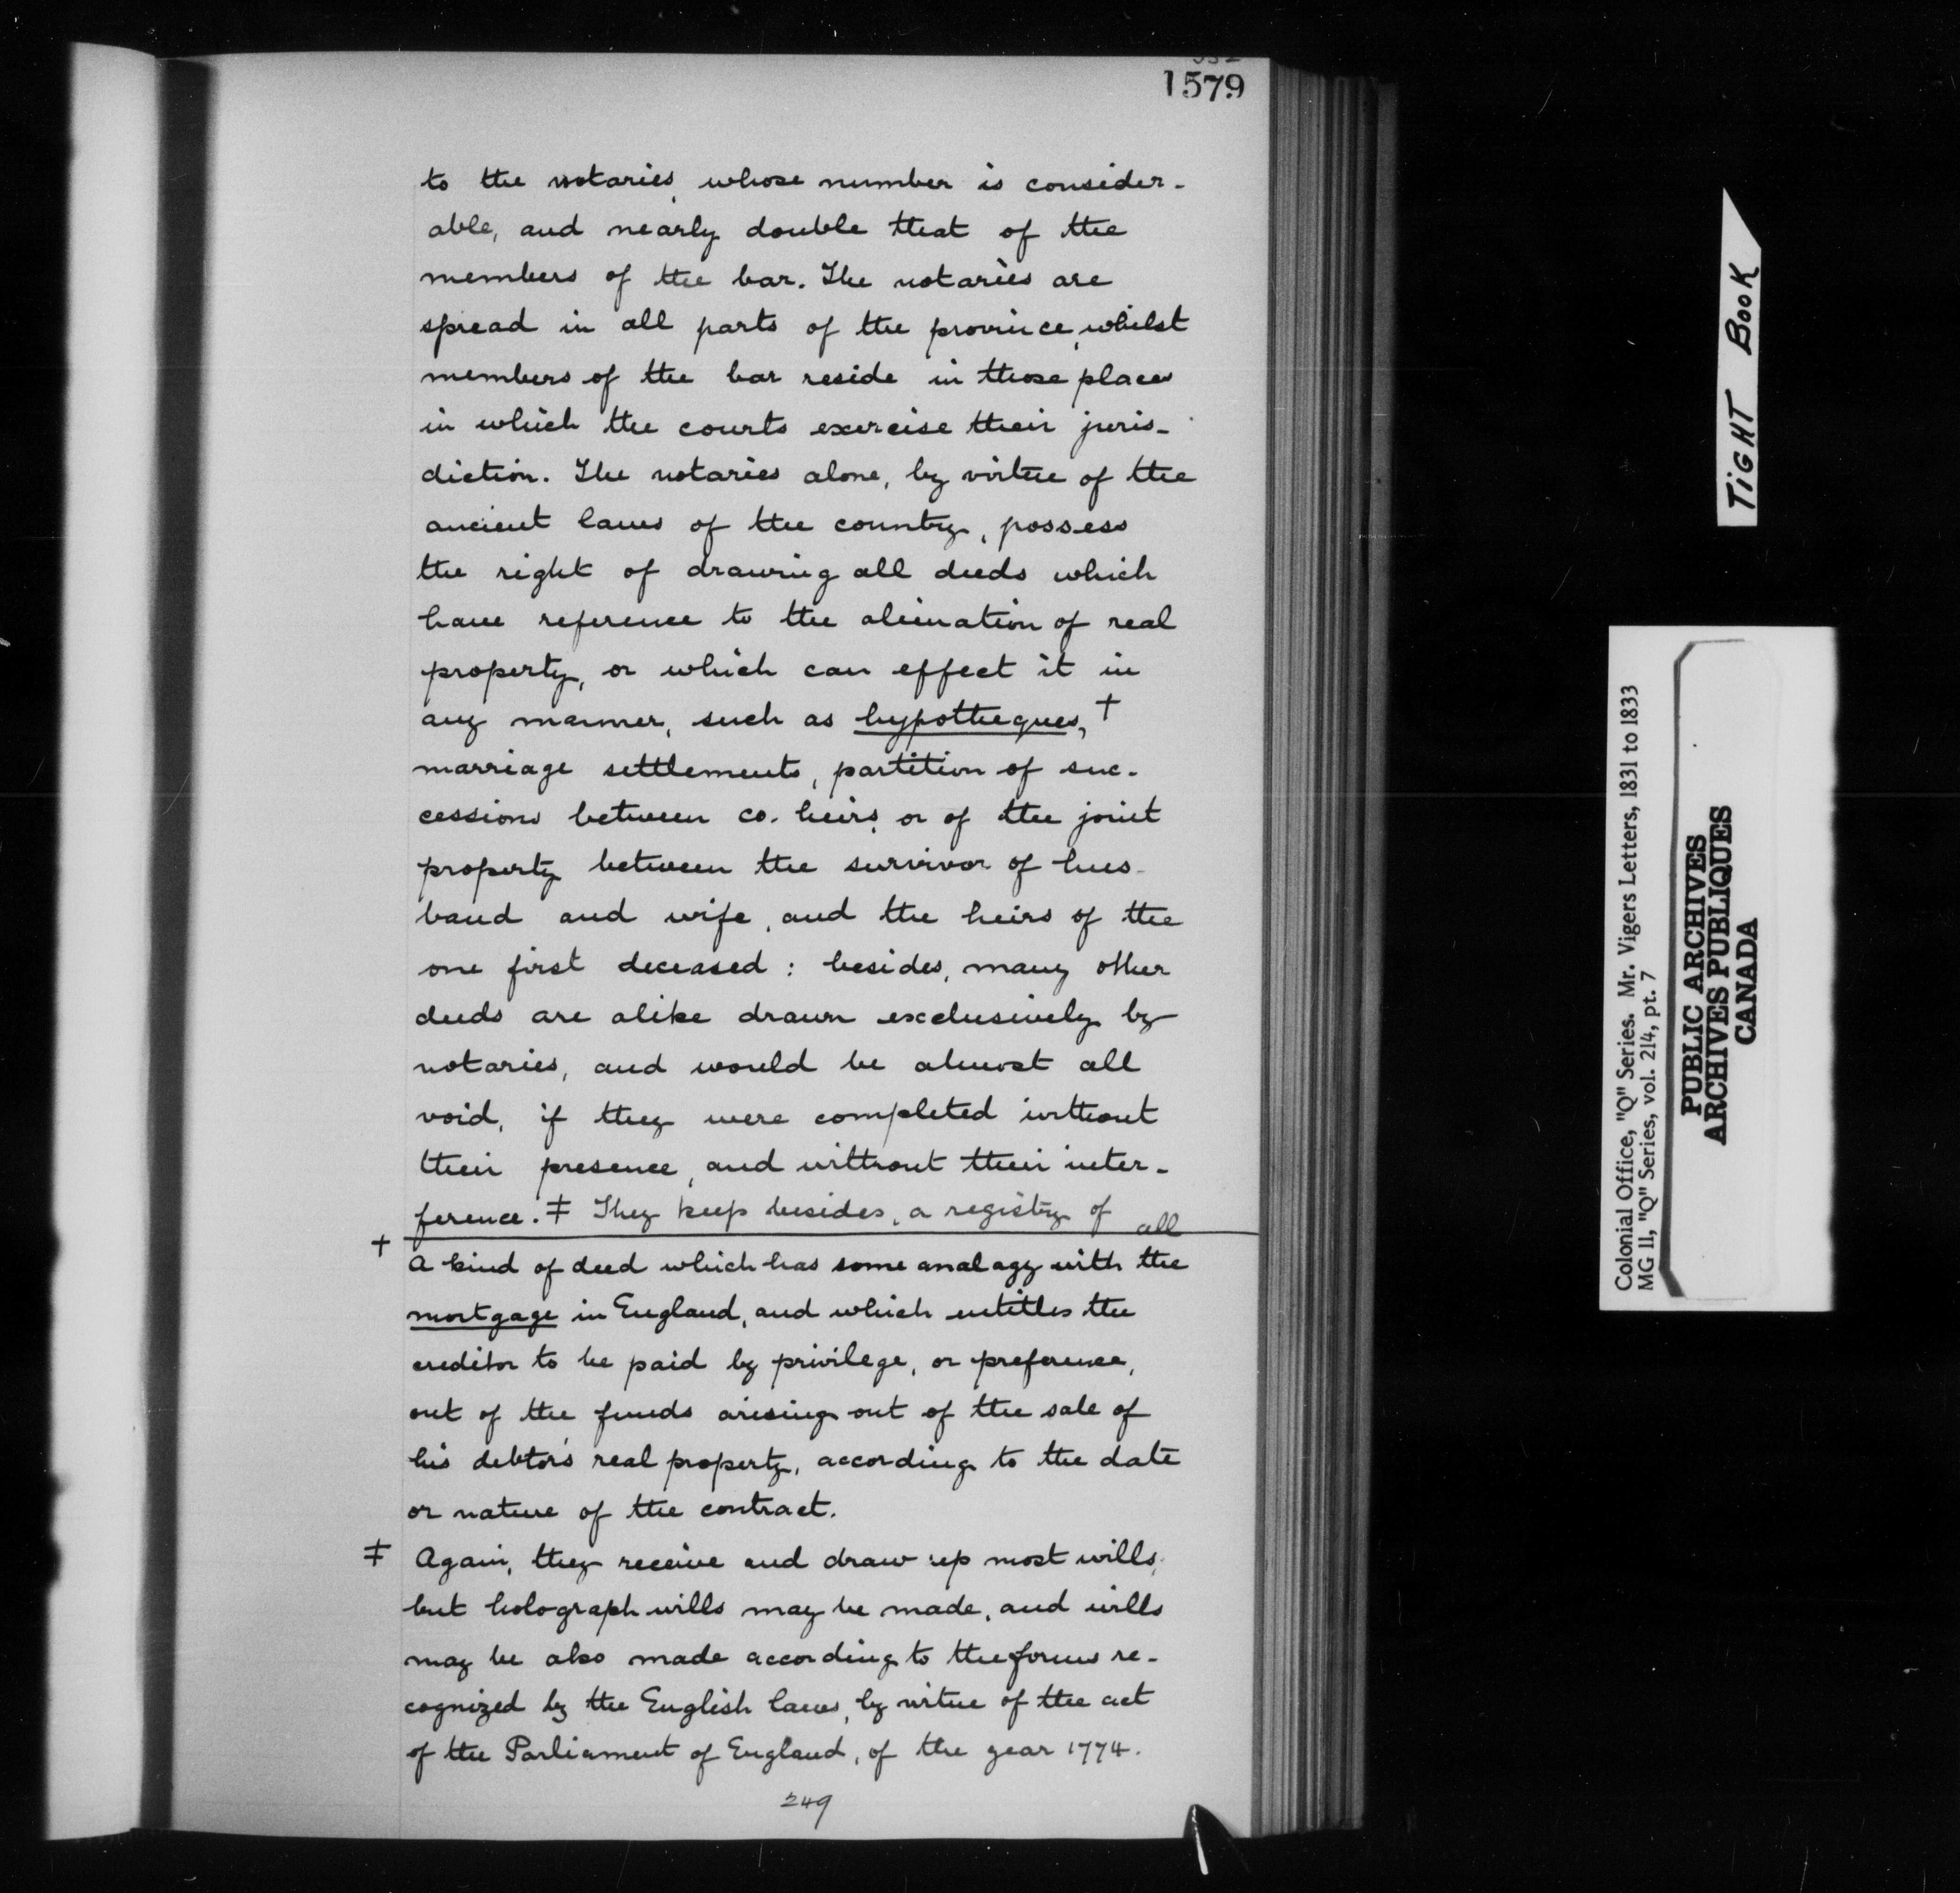 1579
to the notaries, whose number is consider-
able, and nearly double that of the
members of the bar. The notaries are
spread in all parts of the province, whilst
members of the bar reside in those places
in which the courts exercise their juris-
diction. The notaries alone, by virtue of the
ancient laws of the country, possess
the right of drawing all deeds which
have reference to the alienation of real
property, or which can effect it in
any manner, such as hypotheques, †
marriage settlements, partition of suc-
cessions between co-heirs, or of the joint
property between the survivor of hus-
band and wife, and the heirs of the
one first deceased: besides, many other
deeds are alike drawn exclusively by
notaries, and would be almost all
void, if they were completed without
their presence, and without their inter-
ference. ‡ They keep besides, a registry of all
† A kind of deed which has some analagy with the
mortgage in England, and which entitles the
creditor to be paid by privilege, or preference,
out of the funds arising out of the sale of
his debtor's real property, according to the date
or nature of the contract.
‡ Again, they receive and draw up most wills,
but holograph wills may be made, and wills
may be also made according to the forms re-
cognized by the English laws, by virtue of the act
of the Parliament of England, of the year 1774.
249
TIGHT BOOK
Colonial Office, "Q" Series. Mr. Vigers Letters, 1831 to 1833
MG 11, "Q" Series, vol. 214, pt. 7
PUBLIC ARCHIVES
ARCHIVES PUBLIQUES
CANADA